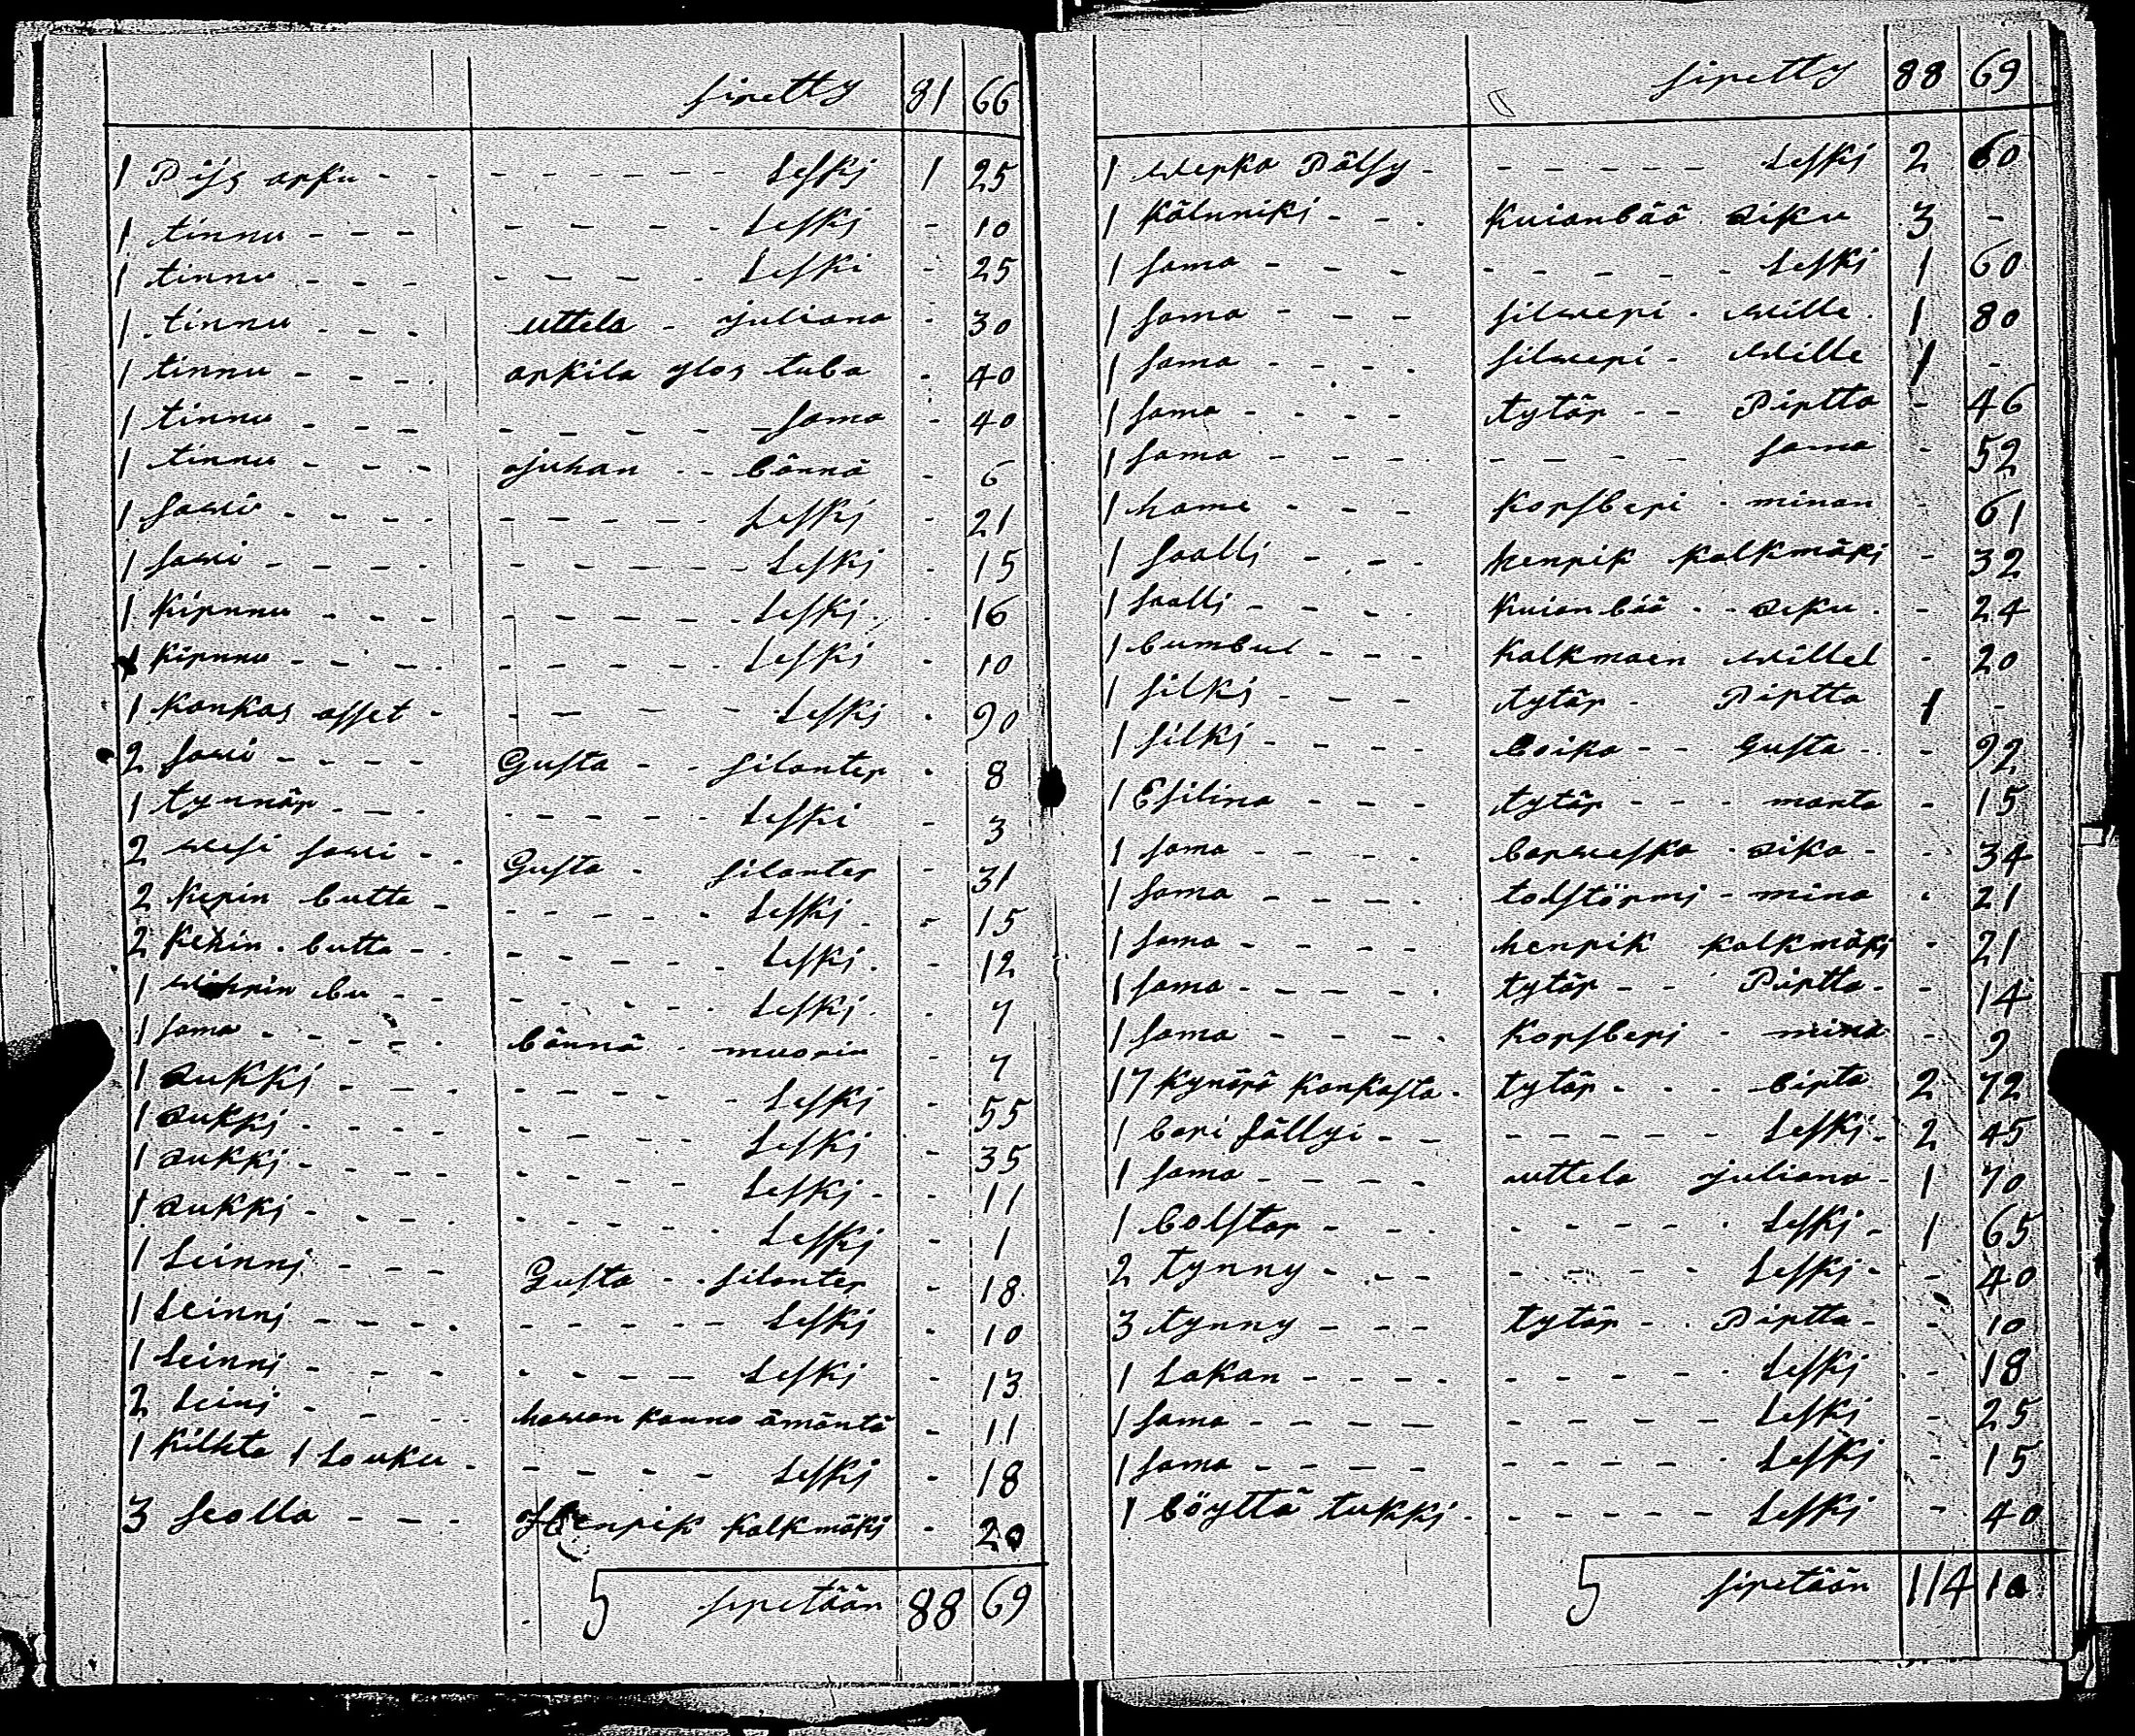 siretty 81 66
1 Pijs arku - - - - - - - - Leski 1 25
1 tinnu - - - - - - - - Leski - 10
1 tinnu - - - - - - - - Leski - 25
1 tinnu - - - uttela - juliana - 30
1 tinnu - - - - arkila ylos tuba - 40
1 tinnu - - - - - - - - sama - 40
1 tinnu - - - juhan - - bännä - 6
1 sawi - - - - - - - - - Leski - 21
1 sawi - - - - - - - - - Leski - 15
1 Kirnnu - - - - - - - - Leski - 16
1 Kirnnu - - - - - - - - Leski - 10
1 Kankas asset - - - - - Leski - 90
2 sawi - - - - Gusta - - silanter - 8
1 tynnär - - - - - - - - Leski - 3
2 wesi sawi - - Gusta - silanter - 31
2 Kerin butta - - - - - - Leski - 15
2 Kehin butta - - - - - - Leski - 12
1 bu - - - - - - - Leski - 7
1 sama - - - - bännä - muorin - 7
1 Rukki - - - - - - - - Leski - 55
1 Rukki - - - - - - - - Leski - 35
1 Rukki - - - - - - - - Leski - 11
1 Rukki - - - - - - - - Leski - 1
1 Leinni - - - Gusta - - silanter - 18
1 Leinni - - - - - - - - Leski - 10
1 Leinni - - - - - - - - Leski - 13
2 Leini - - - - hawan Kanno ämäntä - 11
1 Kilkta 1 Louku - - - - - Leski - 18
3 seolla - - - Henrik Kalkmäki - 20
5 siretään 88 69
siretty 88 69
1 werka Pälsy - - - - - - Leski 2 60
1 Kälnniki - - - Kuianbää Riku 3 -
1 sama - - - - - - - - Leski 1 60
1 sama - - - silweri - wille 1 80
1 sama - - - - silweri - wille 1 -
1 sama - - - - tytär - - Pirtta - 46
1 sama - - - - - - - - sama - 52
1 hame - - - Korsberi - minan - 61
1 saalli - - - henrik Kalkmäki - 32
1 saalli - - - - Kuian bää - - Riku - 24
1 bumbul - - - Kalkmaen willel - 20
1 silki - - - tytär - Pirtta 1 -
1 silki - - - - boika - - Gusta - - 92
1 Esilina - - - tytär - - - manta - 15
1 sama - - - - barweska - Rika - - 34
1 sama - - - - tolstörmi - mina - 21
1 sama - - - - henrik Kalkmäki - 21
1 sama - - - - - tytär - - Pirtta - - 14
1 sama - - - - Korsberi - mina - 9
17 Kynärä Kankasta - tytär - - - birta 2 72
1 bari sällyi - - - - - - - Leski - 2 45
1 sama - - - - uttela juliana - 1 70
1 bolstar - - - - - - - - Leski - 1 65
2 tynny - - - - - - - - - Leski - - 40
3 tynny - - - tytär - - Pirtta - - 10
1 Lakan - - - - - - - - - Leski - 18
1 sama - - - - - - - - - Leski - 25
1 sama - - - - - - - - - Leski - 15
1 böyttä tukki - - - - - - Leski - 40
5 siretään 114 10